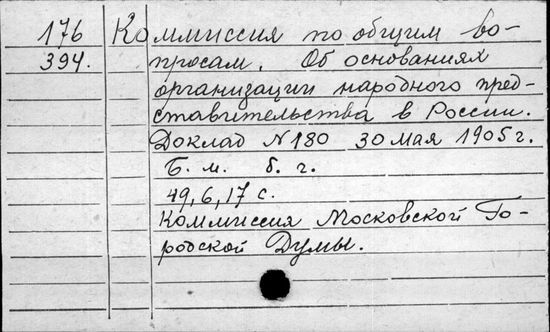 176 Коммиссия по общим во-
394. просам. Об основаниях
организации народного пред-
ставительства в России.
Доклад N180 30 мая 1905 г.
Б. м. б. г.
49, 6, 17 с.
Коммиссия Московской Го-
родской Думы.